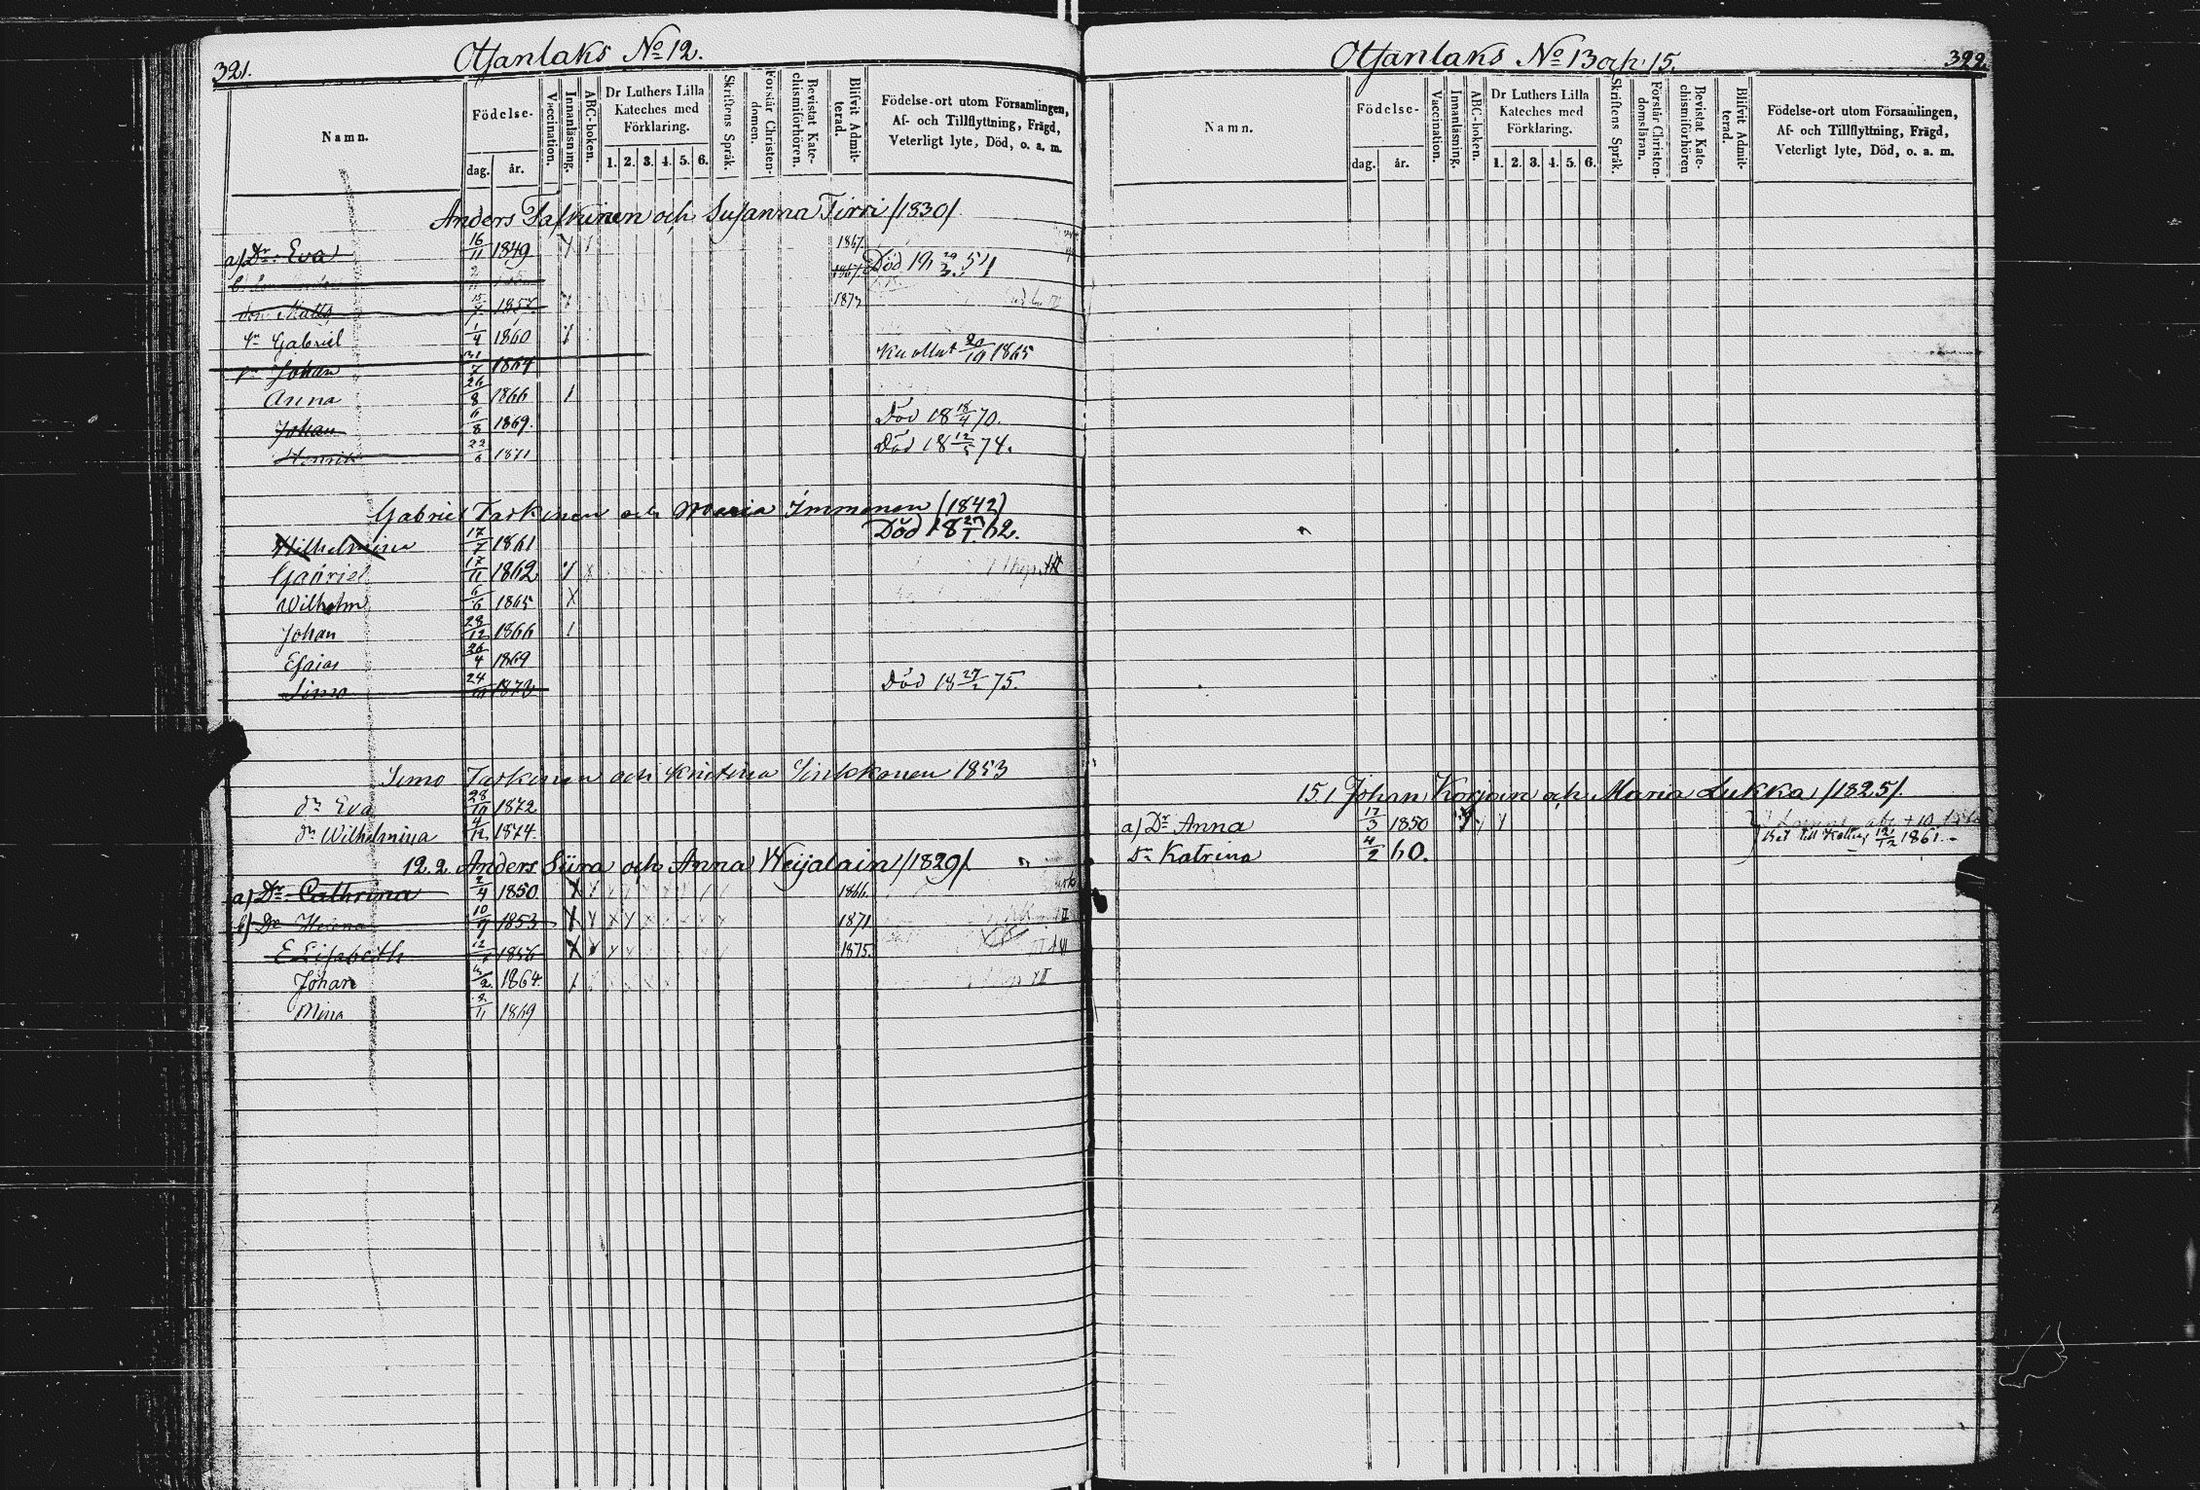 321.
Otsanlaks No 12.
Namn.
Födelse-
dag. år.
Vaccination.
Innanläsning.
ABC-boken.
Dr Luthers Lilla Kateches med Förklaring.
1. 2. 3. 4. 5. 6.
Skriftens Språk.
Förstår Christen-domen.
Bevistat Kate-chismiförhören.
Blifvit Admit-terad.
Födelse-ort utom Församlingen, Af- och Tillflyttning, Frägd, Veterligt lyte, Död, o. a. m.
Anders Taskinen och Susanna Tirri /1830/.
a) Dr. Eva 16/11 1849 1867.
1867. Död 18 29/3 54
Son Matts 15/7 1857 1873
Sn Gabriel 1/4 1860
Sn Johan 31/7 1864 Kuollut 20/10 1865
Anna 26/8 1866
Johan 6/8 1869. Död 18 18/4 70.
Henrik 22/8 1871 Död 18 12/5 74.
Gabriel Taskinen och Maria Immonen (1842)
Wilhelmina 17/7 1861 Död 18 27/1 62.
Gabriel 17/11 1862
Wilhelm 6/6 1865
Johan 28/12 1866
Esaias 26/4 1869
Simo 24/10 1872 Död 18 27/2 75.
Simo Taskinen och Kristina Sinkkonen 1853
dr Eva 28/10 1872
dr Wilhelmina 4/12 1874.
12.2. Anders Siira och Anna Weijalain /1829/.
a) Dr. Cathrina 2/4 1850. 1866.
b) Dr Helena 10/9 1853 1871
E Elisabeth 12/7 1856 1875.
Johan 1864.
Mina 2/11 1869
Otsanlaks No 13 och 15.
322.
Namn.
Födelse-
dag. år.
Vaccination.
Innanläsning.
ABC-boken.
Dr Luthers Lilla Kateches med Förklaring.
1. 2. 3. 4. 5. 6.
Skriftens Språk.
Förstår Christen-domsläran.
Bevistat Kate-chismiförhören
Blifvit Admit-terad.
Födelse-ort utom Församlingen, Af- och Tillflyttning, Frägd, Veterligt lyte, Död, o. a. m.
15.1 Johan Korjoin och Maria Lukka /1825/.
a) Dr Anna 17/3 1850
Dr Katrina 4/2 60. 1861.